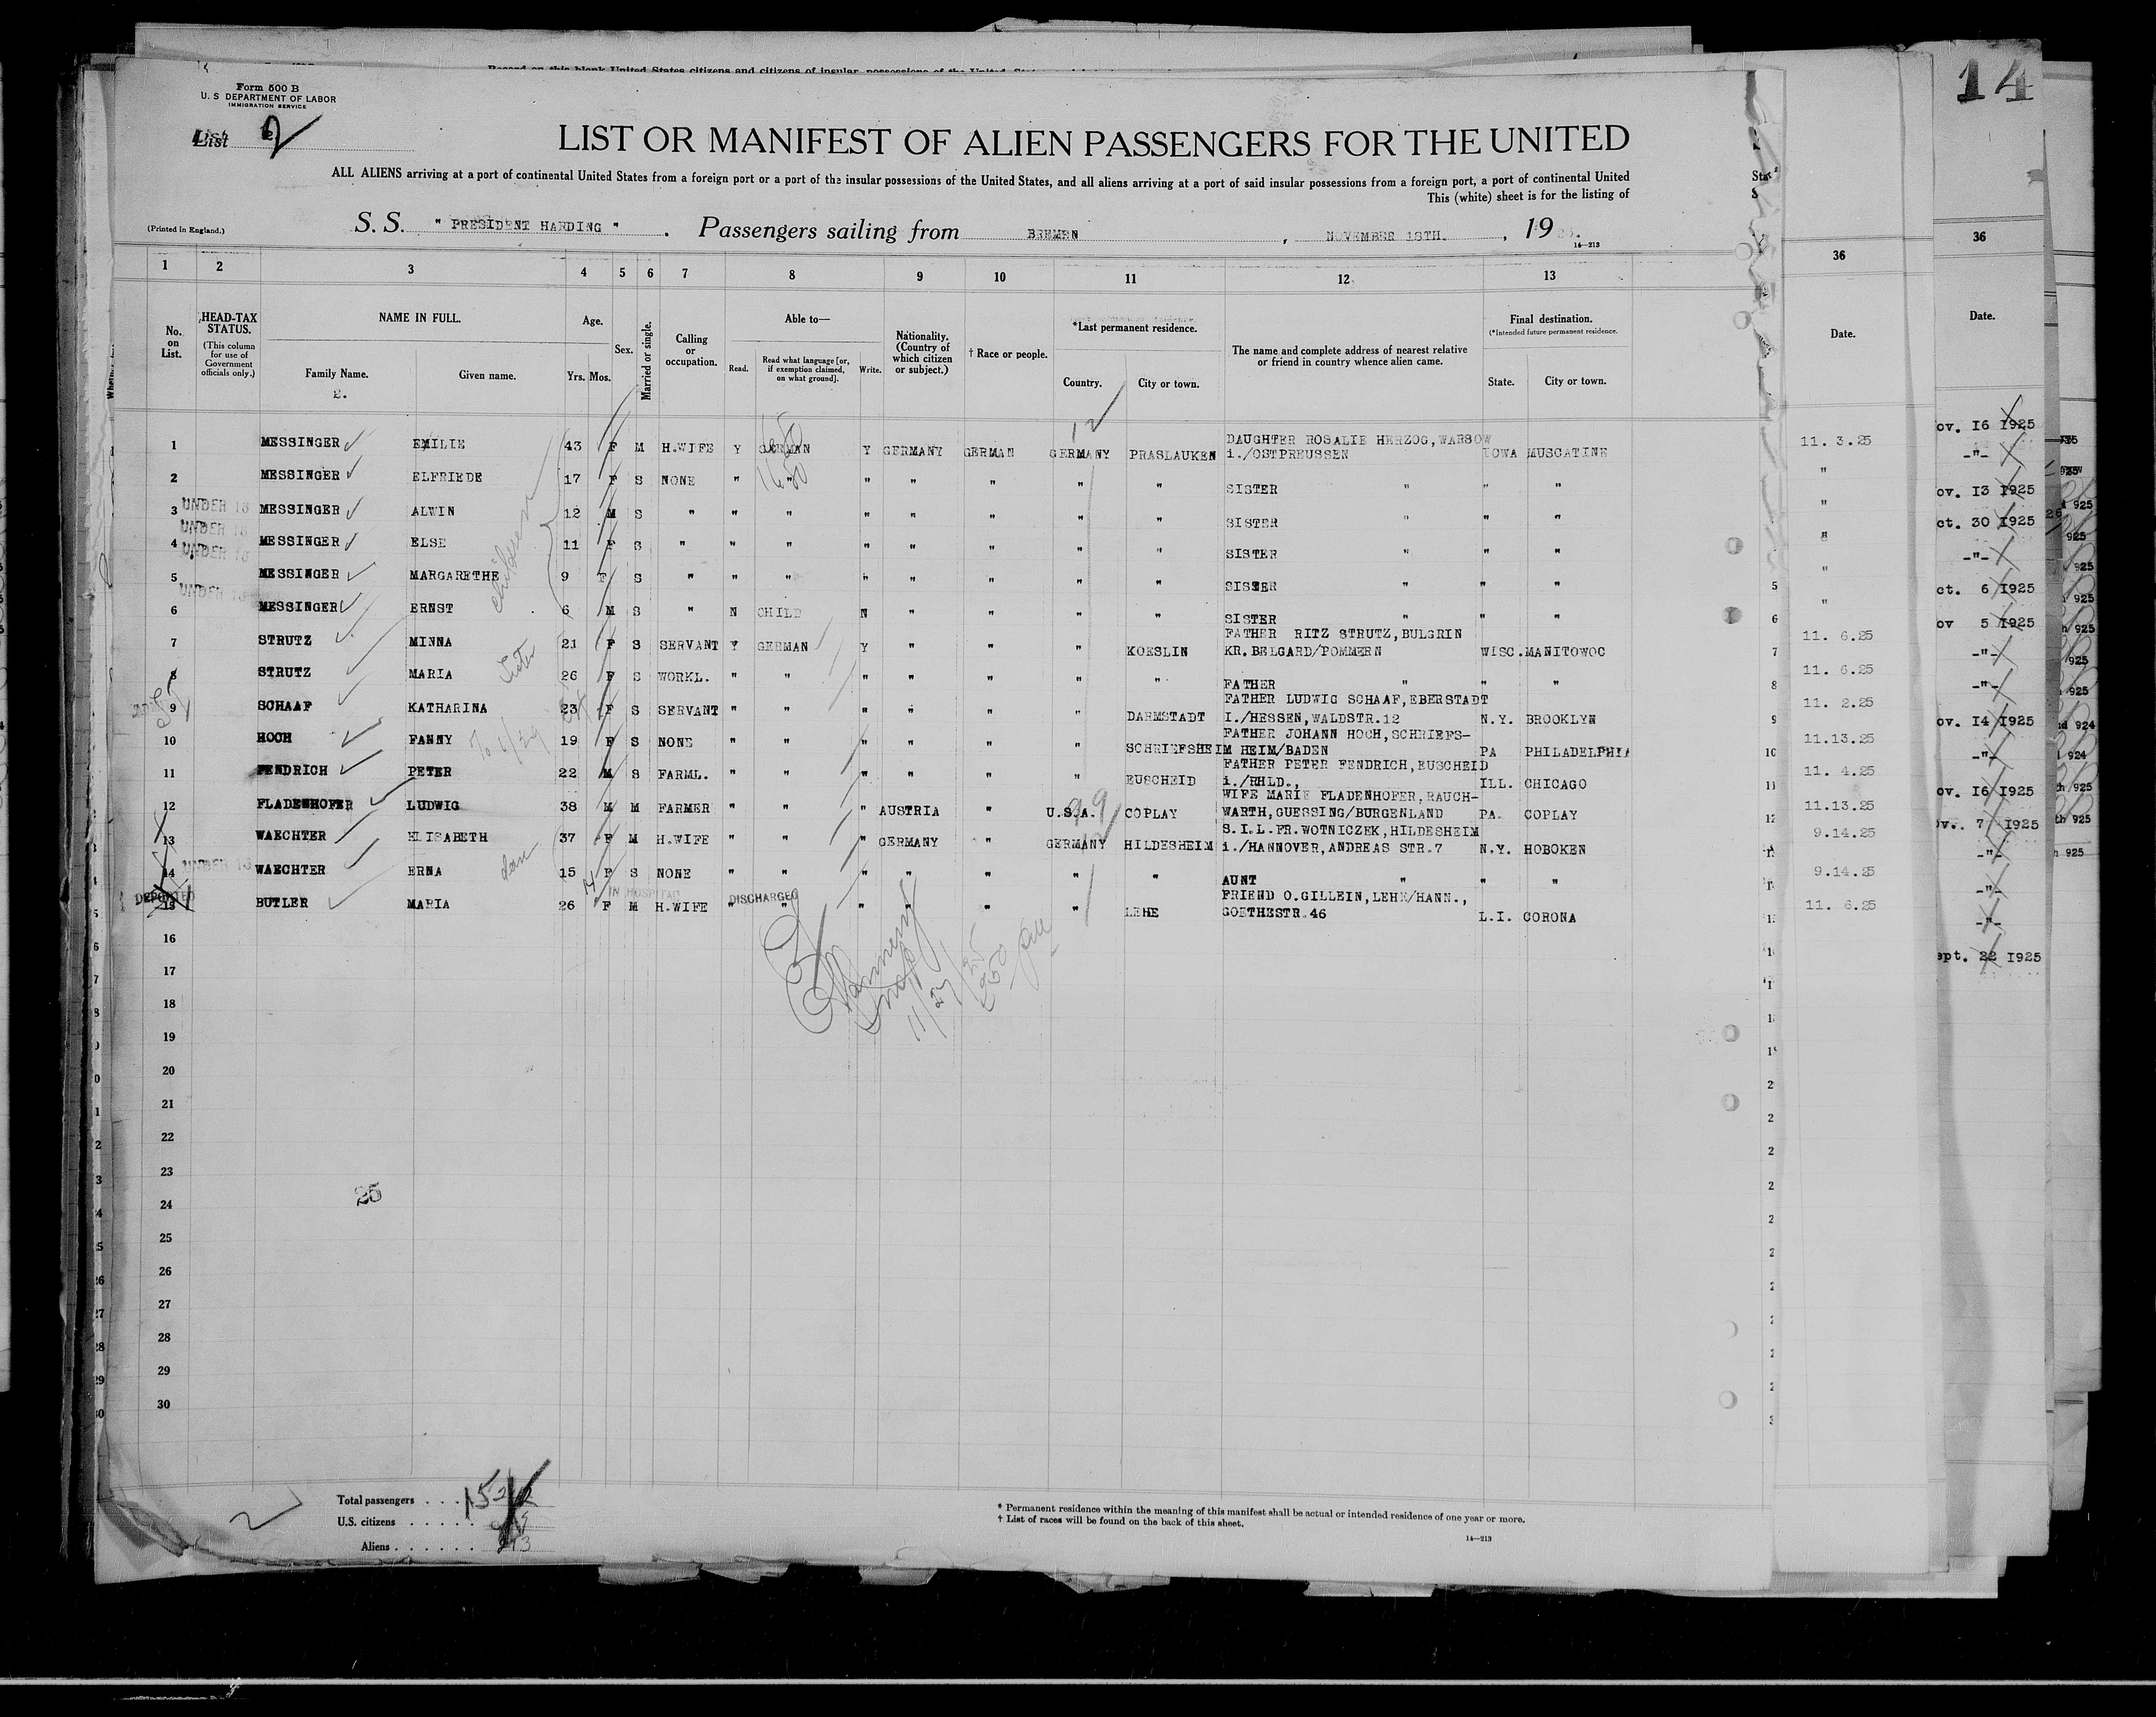 Form 500 B
U. S DEPARTMENT OF LABOR
IMMIGRATION SERVICE
List 2
14
LIST OR MANIFEST OF ALIEN PASSENGERS FOR THE UNITED
ALL ALIENS arriving at a port of continental United States from a foreign port or a port of the insular possessions of the United States, and all aliens arriving at a port of said insular possessions from a foreign port, a port of continental United
This (white) sheet is for the listing of
(Printed in England.) S. S. " PRESIDENT HARDING " . Passengers sailing from BREMEN , NOVEMBER 18TH. , 19
14—213
1 2 3 4 5 6 7 8 9 10 11 12 13 36 36
No. on List.
HEAD-TAX STATUS.
(This column for use of Government officials only.)
NAME IN FULL.
Family Name. Given name.
2.
Age.
Yrs. Mos.
Sex.
Married or single.
Calling or occupation.
Able to—
Read. Read what language [or, if exemption claimed, on what ground]. Write.
Nationality. (Country of which citizen or subject.)
† Race or people.
*Last permanent residence.
Country. City or town.
The name and complete address of nearest relative or friend in country whence alien came.
Final destination.
(*Intended future permanent residence.
State. City or town.
Date. Date.
1 MESSINGER EMILIE 43 F M H.WIFE Y GERMAN Y GERMANY GERMAN GERMANY PRASLAUKEN DAUGHTER ROSALIE HERZOG,WARSOW i./OSTPREUSSEN IOWA MUSCATINE 11. 3.25
2 MESSINGER ELFRIEDE 17 F S NONE " " " " " " " SISTER " " " "
3 UNDER 16 MESSINGER ALWIN 12 M S " " " " " " " " SISTER " " " "
4 UNDER 16 MESSINGER ELSE 11 F S " " " " " " " " SISTER " " " "
5 UNDER 16 MESSINGER MARGARETHE 9 F S " " " " " " " " SISTER " " " "
6 UNDER 16 MESSINGER ERNST 6 M S " N CHILD N " " " " SISTER " " " "
7 STRUTZ MINNA 21 F S SERVANT Y GERMAN Y " " " KOESLIN FATHER RITZ STRUTZ,BULGRIN KR.BELGARD/POMMERN WISC.MANITOWOC 11. 6.25
8 STRUTZ MARIA 26 F S WORKL. " " " " " " " FATHER " " " 11. 6.25
9 SCHAAF KATHARINA 23 F S SERVANT " " " " " " DARMSTADT FATHER LUDWIG SCHAAF,EBERSTADT I./HESSEN,WALDSTR.12 N.Y. BROOKLYN 11. 2.25
10 HOCH FANNY 19 F S NONE " " " " " " SCHRIEFSHEIM FATHER JOHANN HOCH,SCHRIEFS-HEIM/BADEN PA PHILADELPHIA 11.13.25
11 FENDRICH PETER 22 M S FARML. " " " " " " EUSCHEID FATHER PETER FENDRICH,EUSCHEID i./RHLD., ILL. CHICAGO 11. 4.25
12 FLADENHOFER LUDWIG 38 M M FARMER " " " AUSTRIA " U.S.A. COPLAY WIFE MARIE FLADENHOFER,RAUCH-WARTH,GUESSING/BURGENLAND PA. COPLAY 11.13.25
13 WAECHTER ELISABETH 37 F M H.WIFE " " " GERMANY " GERMANY HILDESHEIM S.I.L.FR.WOTNICZEK,HILDESHEIM i./HANNOVER,ANDREAS STR.7 N.Y. HOBOKEN 9.14.25
14 UNDER 16 WAECHTER ERNA 15 F S NONE " " " " " " " AUNT " " " 9.14.25
15 DEPORTED BUTLER MARIA 26 F M H.WIFE IN HOSPITAL DISCHARGED " " " " " LEHE FRIEND O.GILLEIN,LEHE/HANN., GOETHESTR.46 L.I. CORONA 11. 6.25
children
Sister
dau
11/27/25
16
17
18
19
20
21
22
23
24
25
26
27
28
29
30
25
ov. 16 1925
-"-
ov. 13 1925
ct. 30 1925
-"-
ct. 6 1925
ov 5 1925
-"-
-"-
ov. 14 1925
-"-
ov. 16 1925
ov.. 7 1925
-"-
-"-
-"-
ept. 22 1925
Total passengers . . . 15
U.S. citizens . . . . . .
Aliens . . . . . .
* Permanent residence within the meaning of this manifest shall be actual or intended residence of one year or more.
† List of races will be found on the back of this sheet.
14—213